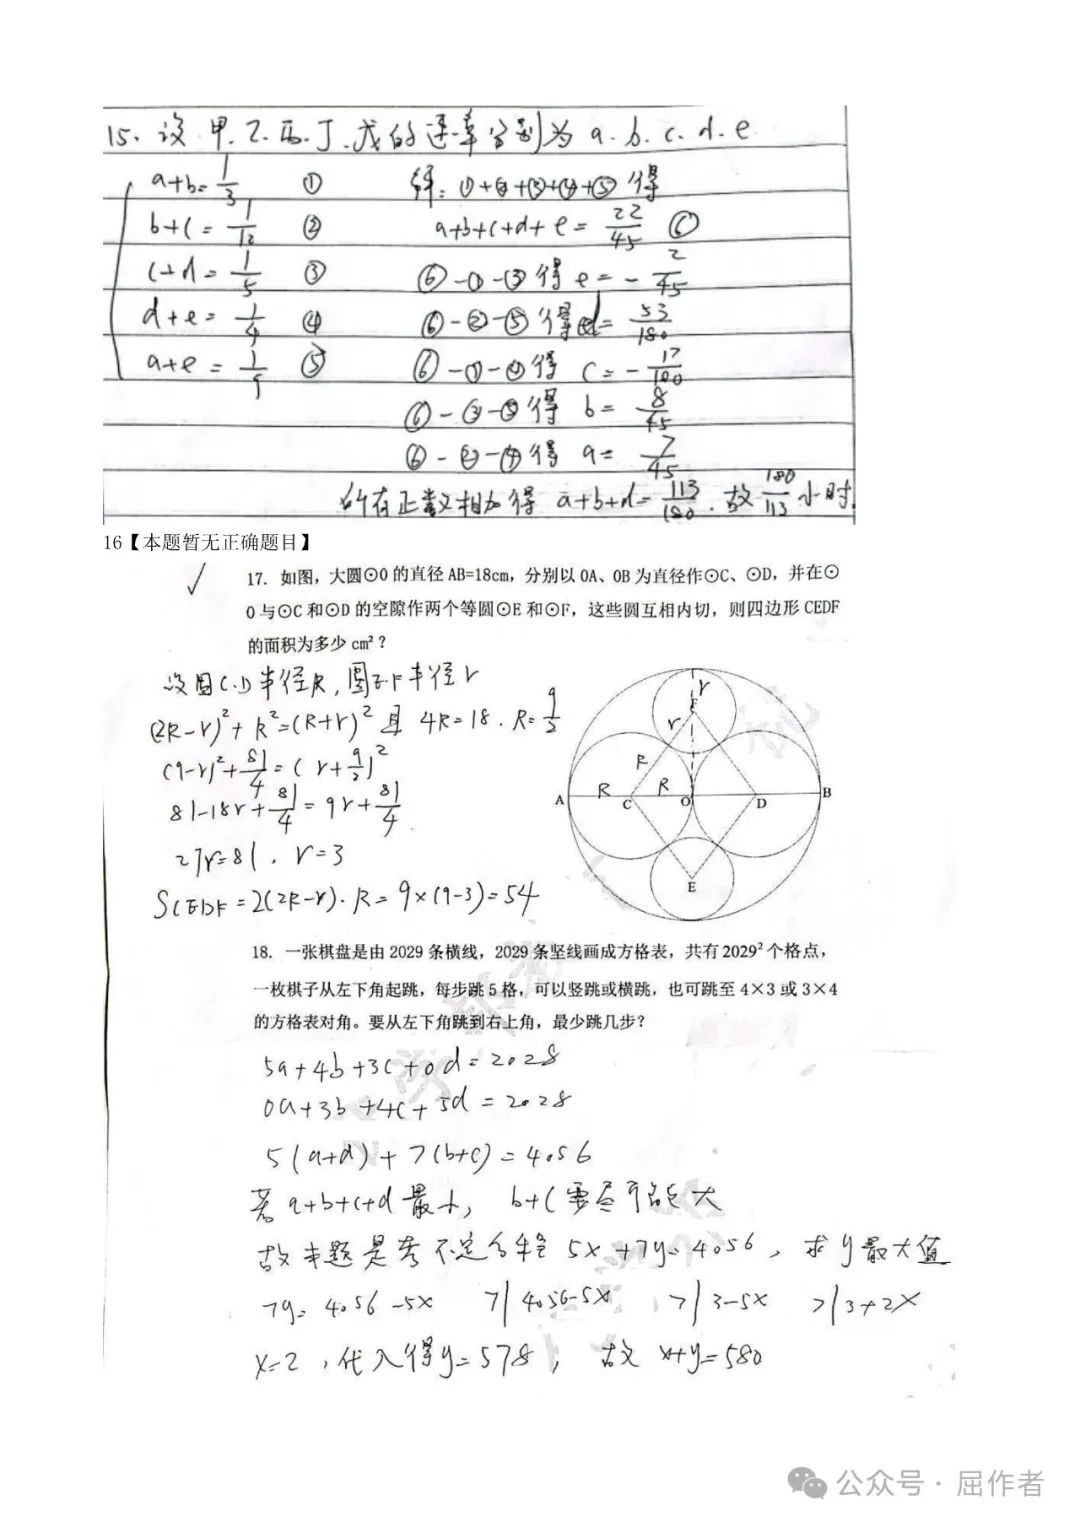 15. 设甲.乙.丙.丁.戊的速率分别为 a.b.c.d.e
a+b=1/3 ① 解:①+②+③+④+⑤得
b+c=1/12 ② a+b+c+d+e=22/45 ⑥
c+d=1/5 ③ ⑥-①-③得 e=-2/45
d+e=1/4 ④ ⑥-②-⑤得 d=53/180
a+e=1/9 ⑤ ⑥-①-④得 c=-17/180
⑥-③-⑤得 b=8/45
⑥-②-④得 a=7/45
所有正数相加得 a+b+d=113/180.故180/113小时.
16【本题暂无正确题目】
√ 17. 如图，大圆⊙O的直径AB=18cm，分别以OA、OB为直径作⊙C、⊙D，并在⊙
O与⊙C和⊙D的空隙作两个等圆⊙E和⊙F，这些圆互相内切，则四边形CEDF
的面积为多少cm²？
设圆C.D半径R，圆E.F半径r
(2R-r)²+R²=(R+r)² 且 4R=18.R=9/2
(9-r)²+81/4=(r+9/2)²
81-18r+81/4=9r+81/4
27r=81，r=3
SCEDF=2(2R-r)·R=9×(9-3)=54
r
F
r
R
R R
A C O D B
E
18. 一张棋盘是由2029条横线，2029条竖线画成方格表，共有2029²个格点，
一枚棋子从左下角起跳，每步跳5格，可以竖跳或横跳，也可跳至4×3或3×4
的方格表对角。要从左下角跳到右上角，最少跳几步？
5a+4b+3c+0d=2028
0a+3b+4c+5d=2028
5(a+d)+7(b+c)=4056
若a+b+c+d最小，b+c要尽可能大
故本题是考不定方程 5x+7y=4056，求y最大值
7y=4056-5x 7|4056-5x 7|3-5x 7|3+2x
x=2，代入得y=578，故x+y=580
公众号·屈作者